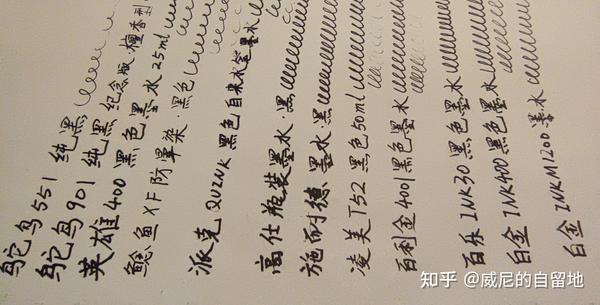 鸵鸟551 纯黑
鸵鸟901 纯黑 纪念版·檀香型
英雄400 黑色墨水25ml
鲶鱼XF防晕染·黑色
派克QUINK黑色自来水笔墨水
高仕瓶装墨水·黑
施耐德 墨水黑
凌美T52黑色50ml
百利金4001黑色墨水
百乐INK30黑色墨水
白金INK400黑色墨水
白金INKM1200墨水
知乎 @威尼的自留地